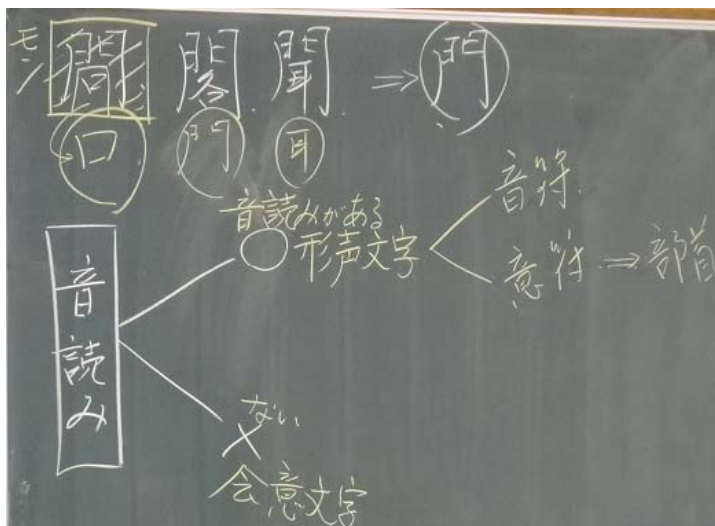 モン 問 閣 聞 ⇒ 門
口 門 耳
音読み
音読みがある
○ 形声文字
音符
意符 ⇒ 部首
ない
× 会意文字